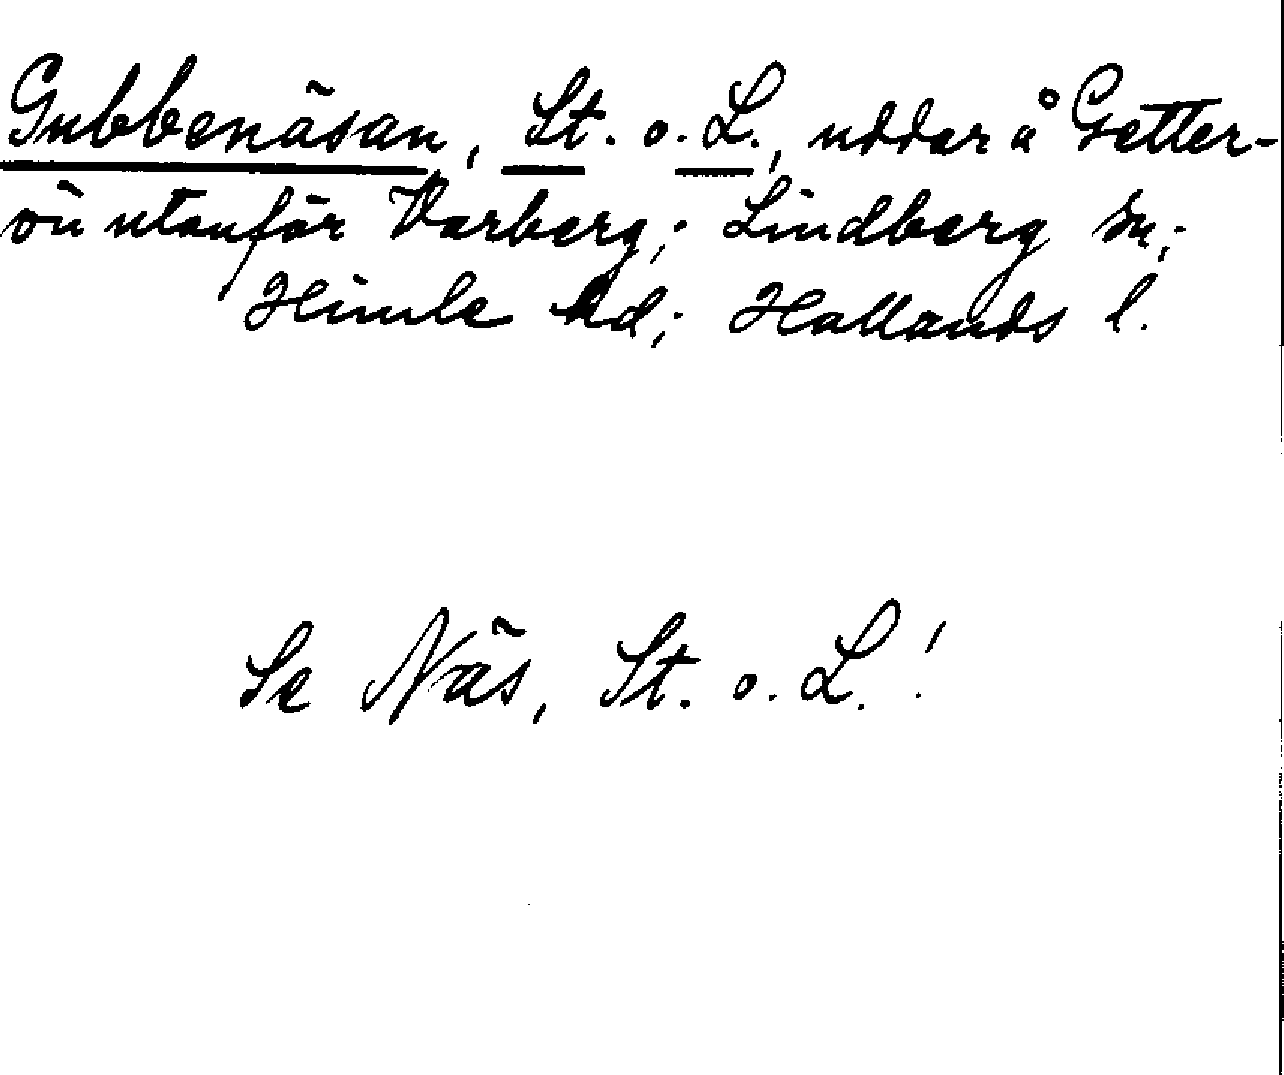 Gubbenäsan, St. o. L., uddar å Getter-
ön utanför Varberg; Lindberg sn;
Himle hd; Hallands l.
Se Näs, St. o. L.!